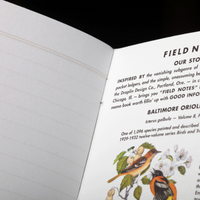 FIELD N
OUR STO
INSPIRED BY the vanishing subgenre of
pocket ledgers, and the simple, unassuming be
the Draplin Design Co., Portland, Ore. — in c
Chicago, Ill. — brings you "FIELD NOTES"
name book worth fillin' up with GOOD INFOR
BALTIMORE ORIOL
Icterus galbula — Volume 8, P
One of 1,096 species painted and described
1920–1922 twelve-volume series Birds and